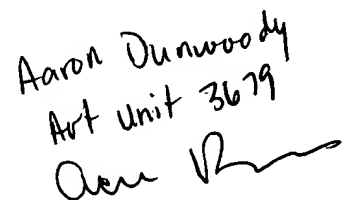 Aaron Dunwoody
Art Unit 3679